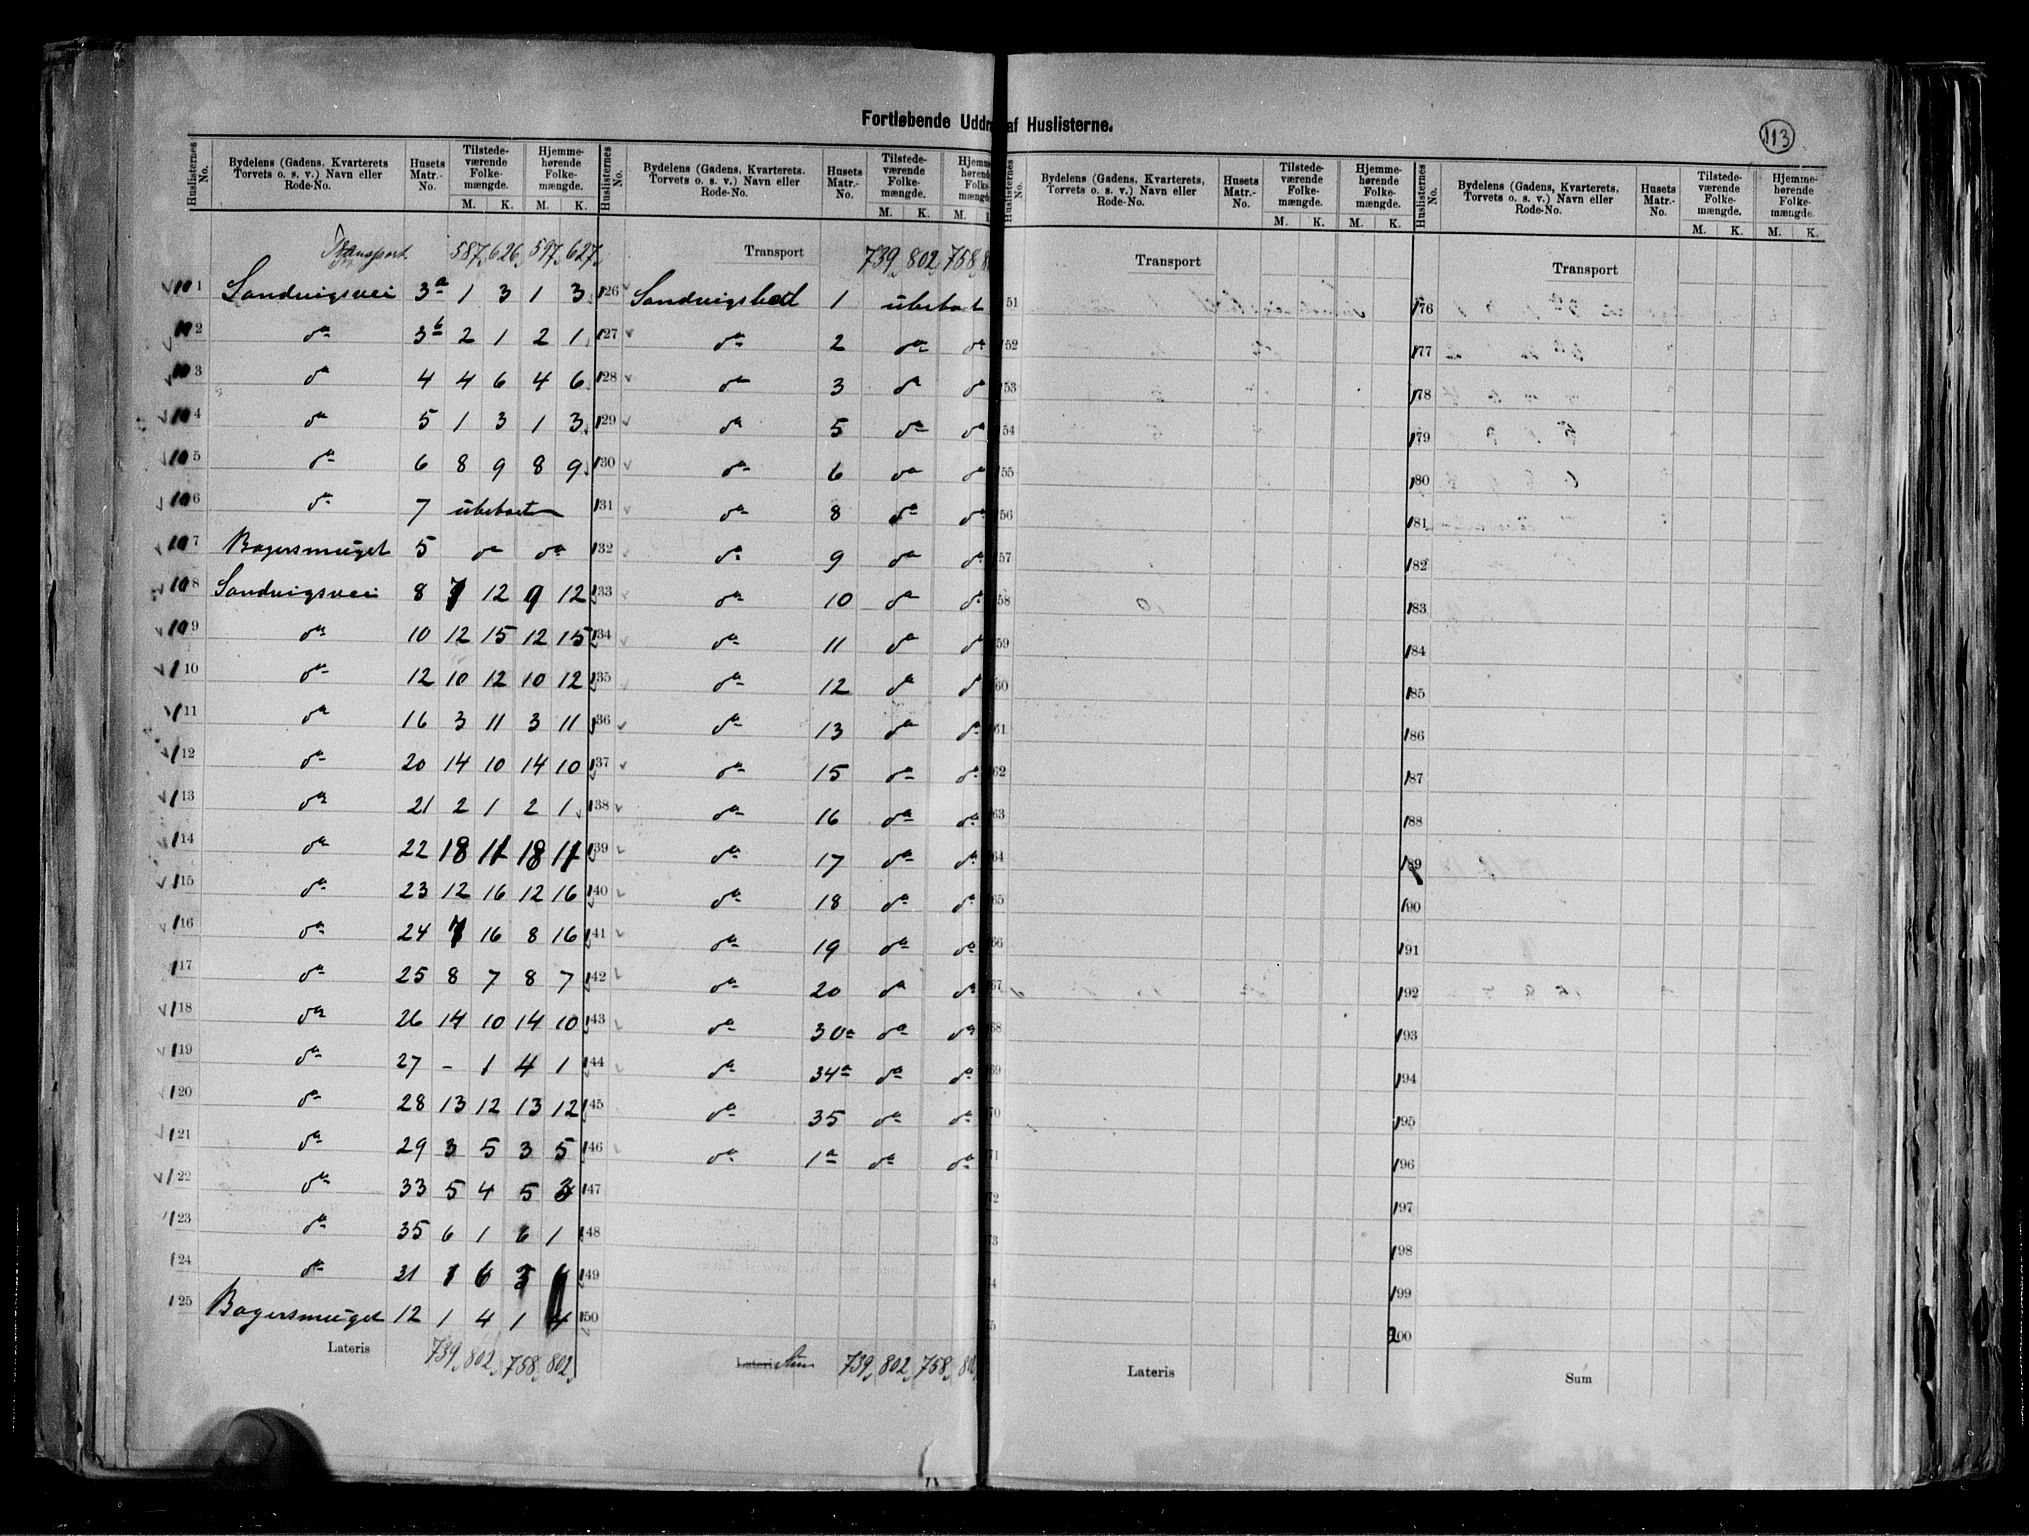 Fortløbende Uddr af Huslisterne.
113
Huslisternes No. Bydelens (Gadens, Kvarterets Torvets o. s. v.) Navn eller Rode-No. Husets Matr.-No. Tilstede-værende Folke-mængde. M. K. Hjemme-hørende Folke-mængde. M. K.
Transport 587 626 597 627
101 Sandvigsvei 3a 1 3 1 3
102 do 3b 2 1 2 1
103 do 4 4 6 4 6
104 do 5 1 3 1 3
105 do 6 8 9 8 9
106 do 7 ubeboet
107 Bagersmuget 5 do do
108 Sandvigsvei 8 7 12 9 12
109 do 10 12 15 12 15
110 do 12 10 12 10 12
111 do 16 3 11 3 11
112 do 20 14 10 14 10
113 do 21 2 1 2 1
114 do 22 18 11 18 11
115 do 23 12 16 12 16
116 do 24 7 16 8 16
117 do 25 8 7 8 7
118 do 26 14 10 14 10
119 do 27 - 1 4 1
120 do 28 13 12 13 12
121 do 29 3 5 3 5
122 do 33 5 4 5 3
123 do 35 6 1 6 1
124 do 31 1 6 3
125 Bagersmuget 12 1 4 1 4
Lateris 739 802 758 802
Huslisternes No. Bydelens (Gadens, Kvarterets. Torvets o. s. v.) Navn eller Rode-No. Husets Matr.-No. Tilstede-værende Folke-mængde. M. K. Hjemme-hørende Folke-mængde M.
Transport 739 802 758
126 Sandvigsbod 1 ubeboet
127 do 2 do do
128 do 3 do do
129 do 5 do do
130 do 6 do do
131 do 8 do do
132 do 9 do do
133 do 10 do do
134 do 11 do do
135 do 12 do do
136 do 13 do do
137 do 15 do do
138 do 16 do do
139 do 17 do do
140 do 18 do do
141 do 19 do do
142 do 20 do do
143 do 30a do do
144 do 34a do do
145 do 35 do do
146 do 1a do do
147
148
149
150
Lateris Sum 739 802 758 802
Huslisternes No. Bydelens (Gadens, Kvarterets, Torvets o. s. v.) Navn eller Rode-No. Husets Matr.-No. Tilstede-værende Folke-mængde. M. K. Hjemme-hørende Folke-mængde. M. K.
Transport
51
52
53
54
55
56
57
58
59
60
61
62
63
64
65
66
67
68
69
70
71
72
73
74
75
Lateris
Huslisternes No. Bydelens (Gadens, Kvarterets, Torvets o. s. v.) Navn eller Rode-No. Husets Matr.-No. Tilstede-værende Folke-mængde. M. K. Hjemme-hørende Folke-mængde. M. K.
Transport
176
177
178
179
180
181
182
183
184
185
186
187
188
189
190
191
192
193
194
195
196
197
198
199
200
Sum